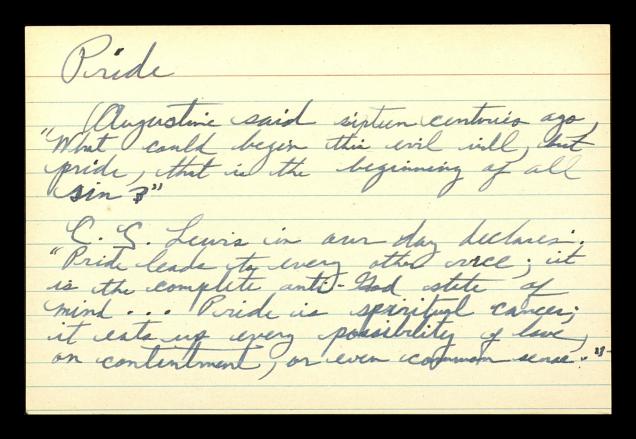 Pride
(Augustine said sixteen centuries ago,
"What could begin this evil will, but
pride, that is the beginning of all
sin?"
C. S. Lewis in our day declares:
"Pride leads to every other vice; it
is the complete anti-God state of
mind... Pride is spiritual cancer;
it eats up every possibility of love,
on contentment, or even common sense."